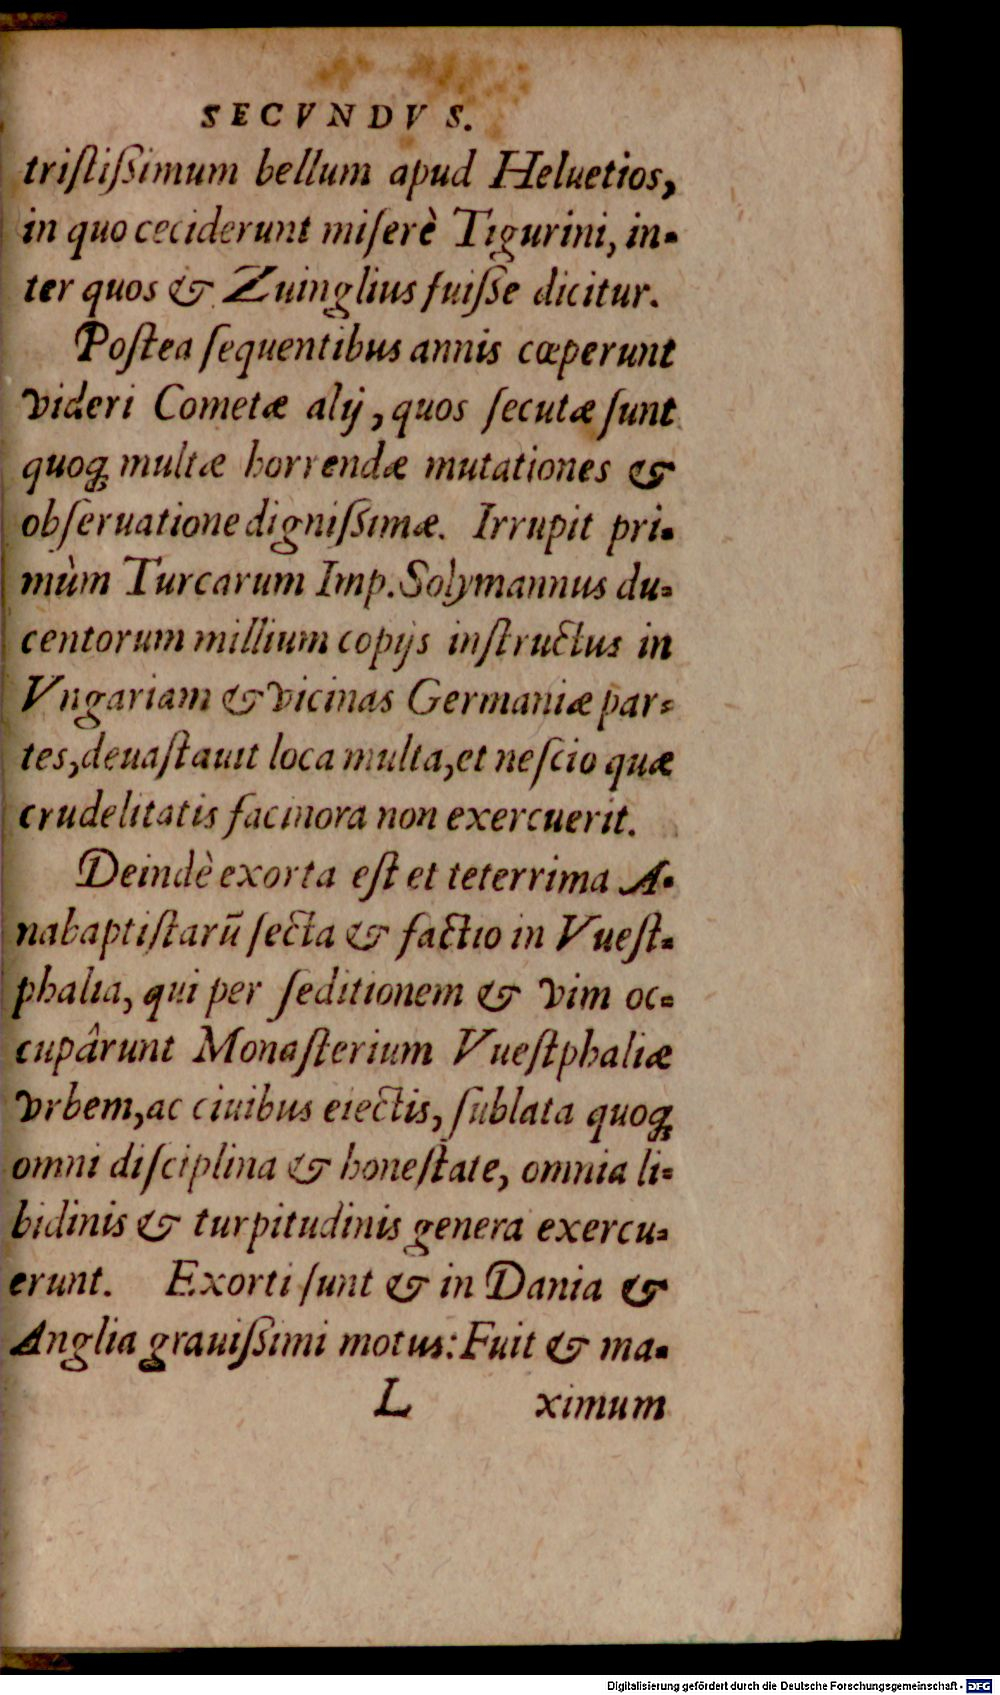 SECVNDVS.
tristißimum bellum apud Heluetios,
in quo ceciderunt miserè Tigurini, in-
ter quos & Zuinglius fuiße dicitur.
Postea sequentibus annis cœperunt
videri Cometæ alij, quos secutæ sunt
quoq; multæ horrendæ mutationes &
obseruatione dignißimæ. Irrupit pri-
mùm Turcarum Imp. Solymannus du-
centorum millium copijs instructus in
Vngariam & vicinas Germaniæ par-
tes, deuastauit loca multa, et nescio quæ
crudelitatis facinora non exercuerit.
Deindè exorta est et teterrima A-
nabaptistarũ secta & factio in Vuest-
phalia, qui per seditionem & vim oc-
cupârunt Monasterium Vuestphaliæ
vrbem, ac ciuibus eiectis, sublata quoq;
omni disciplina & honestate, omnia li-
bidinis & turpitudinis genera exercu-
erunt. Exorti sunt & in Dania &
Anglia grauißimi motus: Fuit & ma-
L ximum
Digitalisierung gefördert durch die Deutsche Forschungsgemeinschaft - DFG